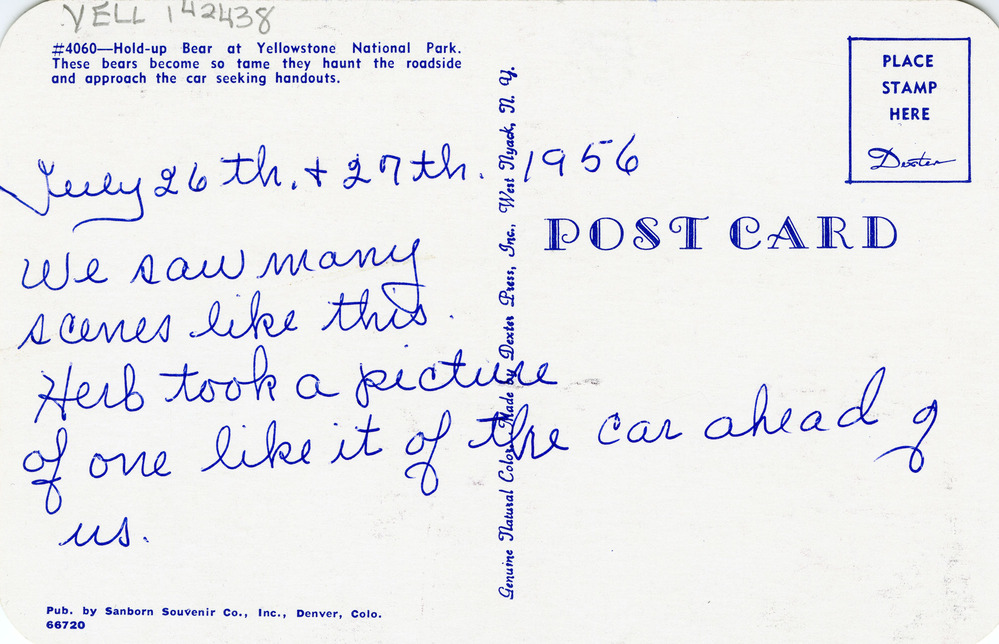 VELL 142438
#4060—Hold-up Bear at Yellowstone National Park.
These bears become so tame they haunt the roadside
and approach the car seeking handouts.
PLACE
STAMP
HERE
Dexter
July 26th. + 27th. 1956
POST CARD
We saw many
scenes like this.
Herb took a picture
of one like it of the car ahead of
us.
Genuine Natural Color Made by Dexter Press, Inc., West Nyack, N. Y.
Pub. by Sanborn Souvenir Co., Inc., Denver, Colo.
66720